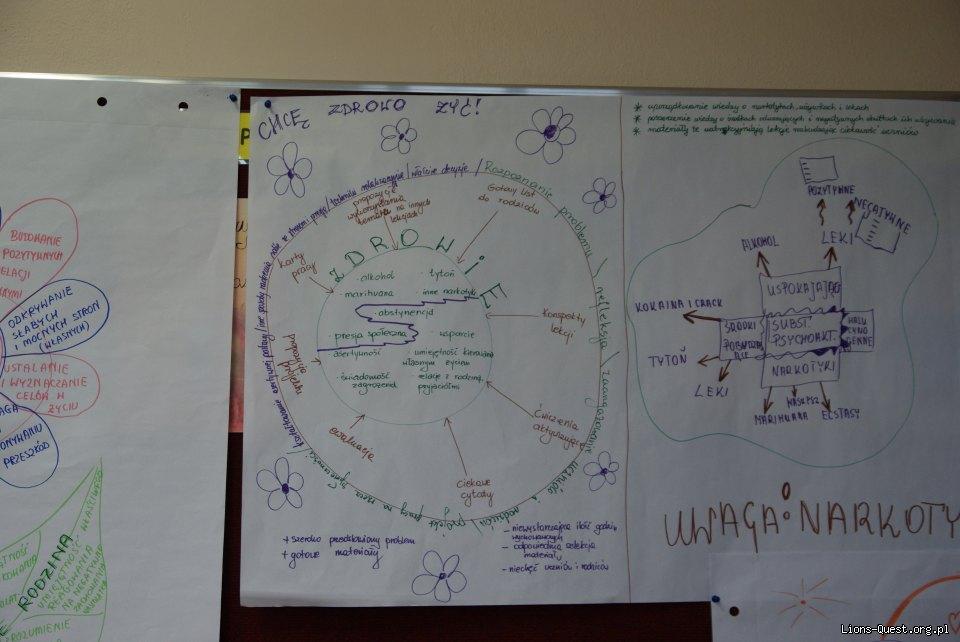 CHCĘ ZDROWO ŻYĆ!
Rozpoznanie problemu
refleksja
zaangażowanie uczniów i rodziców
propozycje
wykorzystania
tematu na innych
lekcjach
Gotowy list
do rodziców
Karty
pracy
ZDROWIE
- alkohol
- tytoń
- marihuana
- inne narkotyki
- abstynencja
- presja społeczna
- wsparcie
- asertywność
- umiejętność kierowania
własnym życiem
- świadomość
zagrożeń
- relacje z rodziną,
przyjaciółmi
Konspekty
lekcji
Ćwiczenia
aktywizujące
Ciekawe
cytaty
ewaluacja
+ szeroko przedstawiony problem
+ gotowe materiały
- niewystarczająca ilość godzin
wychowawczych
- odpowiednia selekcja
materiału
- niechęć uczniów i rodziców
* uporządkowanie wiedzy o narkotykach, używkach i lekach
* poszerzenie wiedzy o środkach odurzających i negatywnych skutkach ich używania
POZYTYWNE
NEGATYWNE
ALKOHOL
LEKI
USPOKAJAJĄ
KOKAINA I CRACK
ŚRODKI
SUBST.
PSYCHOAKT.
HALU
CYNO
GENNE
TYTOŃ
LEKI
NARKOTYKI
MARIHUANA
ECSTASY
UWAGA: NARKOTY
BUDOWANIE
POZYTYWNYCH
ELACJI
ODKRYWANIE
SŁABYCH
I MOCNYCH STRON
(WŁASNYCH)
USTALANIE
I WYZNACZANIE
CELÓW W
ŻYCIU
ONYWANIU
PRZESZKÓD
RODZINA
Lions-Quest.org.pl